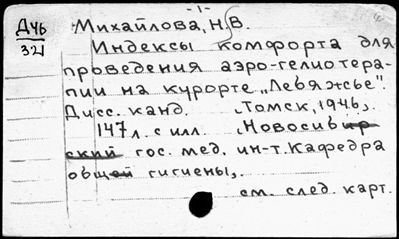 -1-
Дч6
321
Михайлова, Н.В.
Индексы комфорта для
проведения аэро-гелиотера-
пии на курорте „Лебяжье".
Дисс. канд. Томск, 1946,.
147 л. с илл. Новосибир
ский гос. мед. ин-т. Кафедра
общей гигиены,.
см. след. карт.